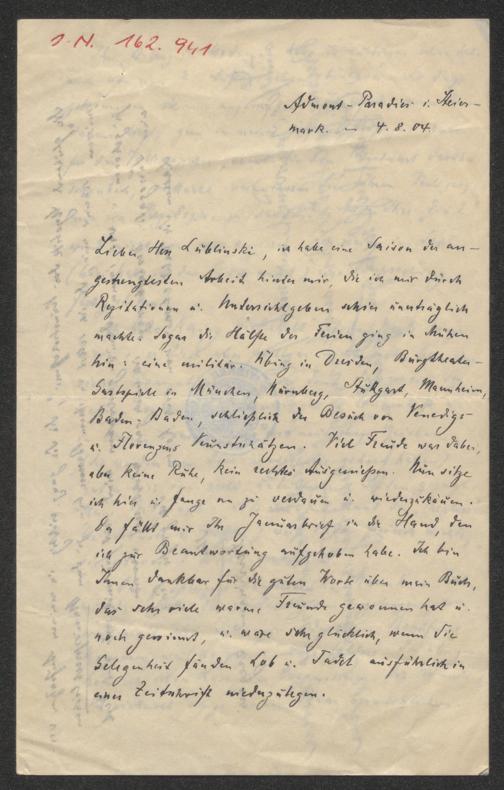 J.N. 162.941
Admont-Paradies i. Steier-
mark. – 4.8.04.
Lieber Herr Lublinski, ich habe eine Saison der an-
gestrengtesten Arbeit hinter mir, die ich mir durch
Rezitationen u. Unterrichtgeben schier unerträglich
machte. Sogar die Hälfte der Ferien ging in Mühen
hin: eine militär. Übung in Dresden, Burgtheater-
Gastspiele in München, Nürnberg, Stuttgart, Mannheim,
Baden-Baden, schließlich der Besuch von Venedigs
u. Florenzens Kunstschätzen. Viel Freude war dabei,
aber keine Ruhe, kein rechtes Ausgenießen. Nun sitze
ich hier u. fange an zu verdauen u. wiederzukäuen.
Da fällt mir Ihr Januarbrief in die Hand, den
ich zur Beantwortung aufgehoben habe. Ich bin
Ihnen dankbar für die guten Worte über mein Buch,
das sehr viele warme Freunde gewonnen hat u.
noch gewinnt, u. wäre sehr glücklich, wenn Sie
Gelegenheit fänden Lob u. Tadel ausführlich in
einer Zeitschrift niederzulegen.